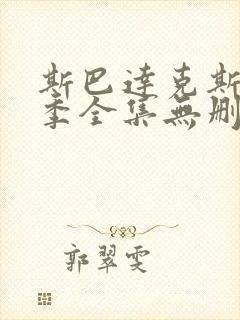 斯巴達克斯
季全集無刪
郭翠雯